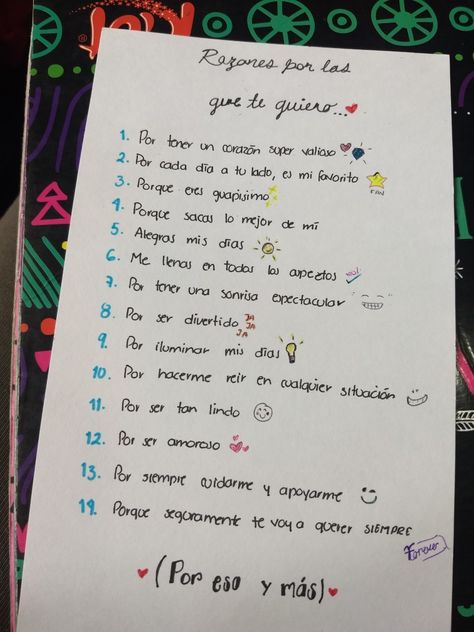 Razones por las
que te quiero...
1. Por tener un corazón super valioso
2. Por cada día a tu lado, es mi favorito
FAN
3. Porque eres guapisimo
4. Porque sacas lo mejor de mí
5. Alegras mis días
6. Me llenas en todos los aspeztos
7. Por tener una sonrisa espectacular
8. Por ser divertido JA JA JA
9. Por iluminar mis días
10. Por hacerme reir en cualquier situación
11. Por ser tan lindo
12. Por ser amoroso
13. Por siempre cuidarme y apoyarme
14. Porque seguramente te voy a querer SIEMPRE
Forever
(Por eso y más)